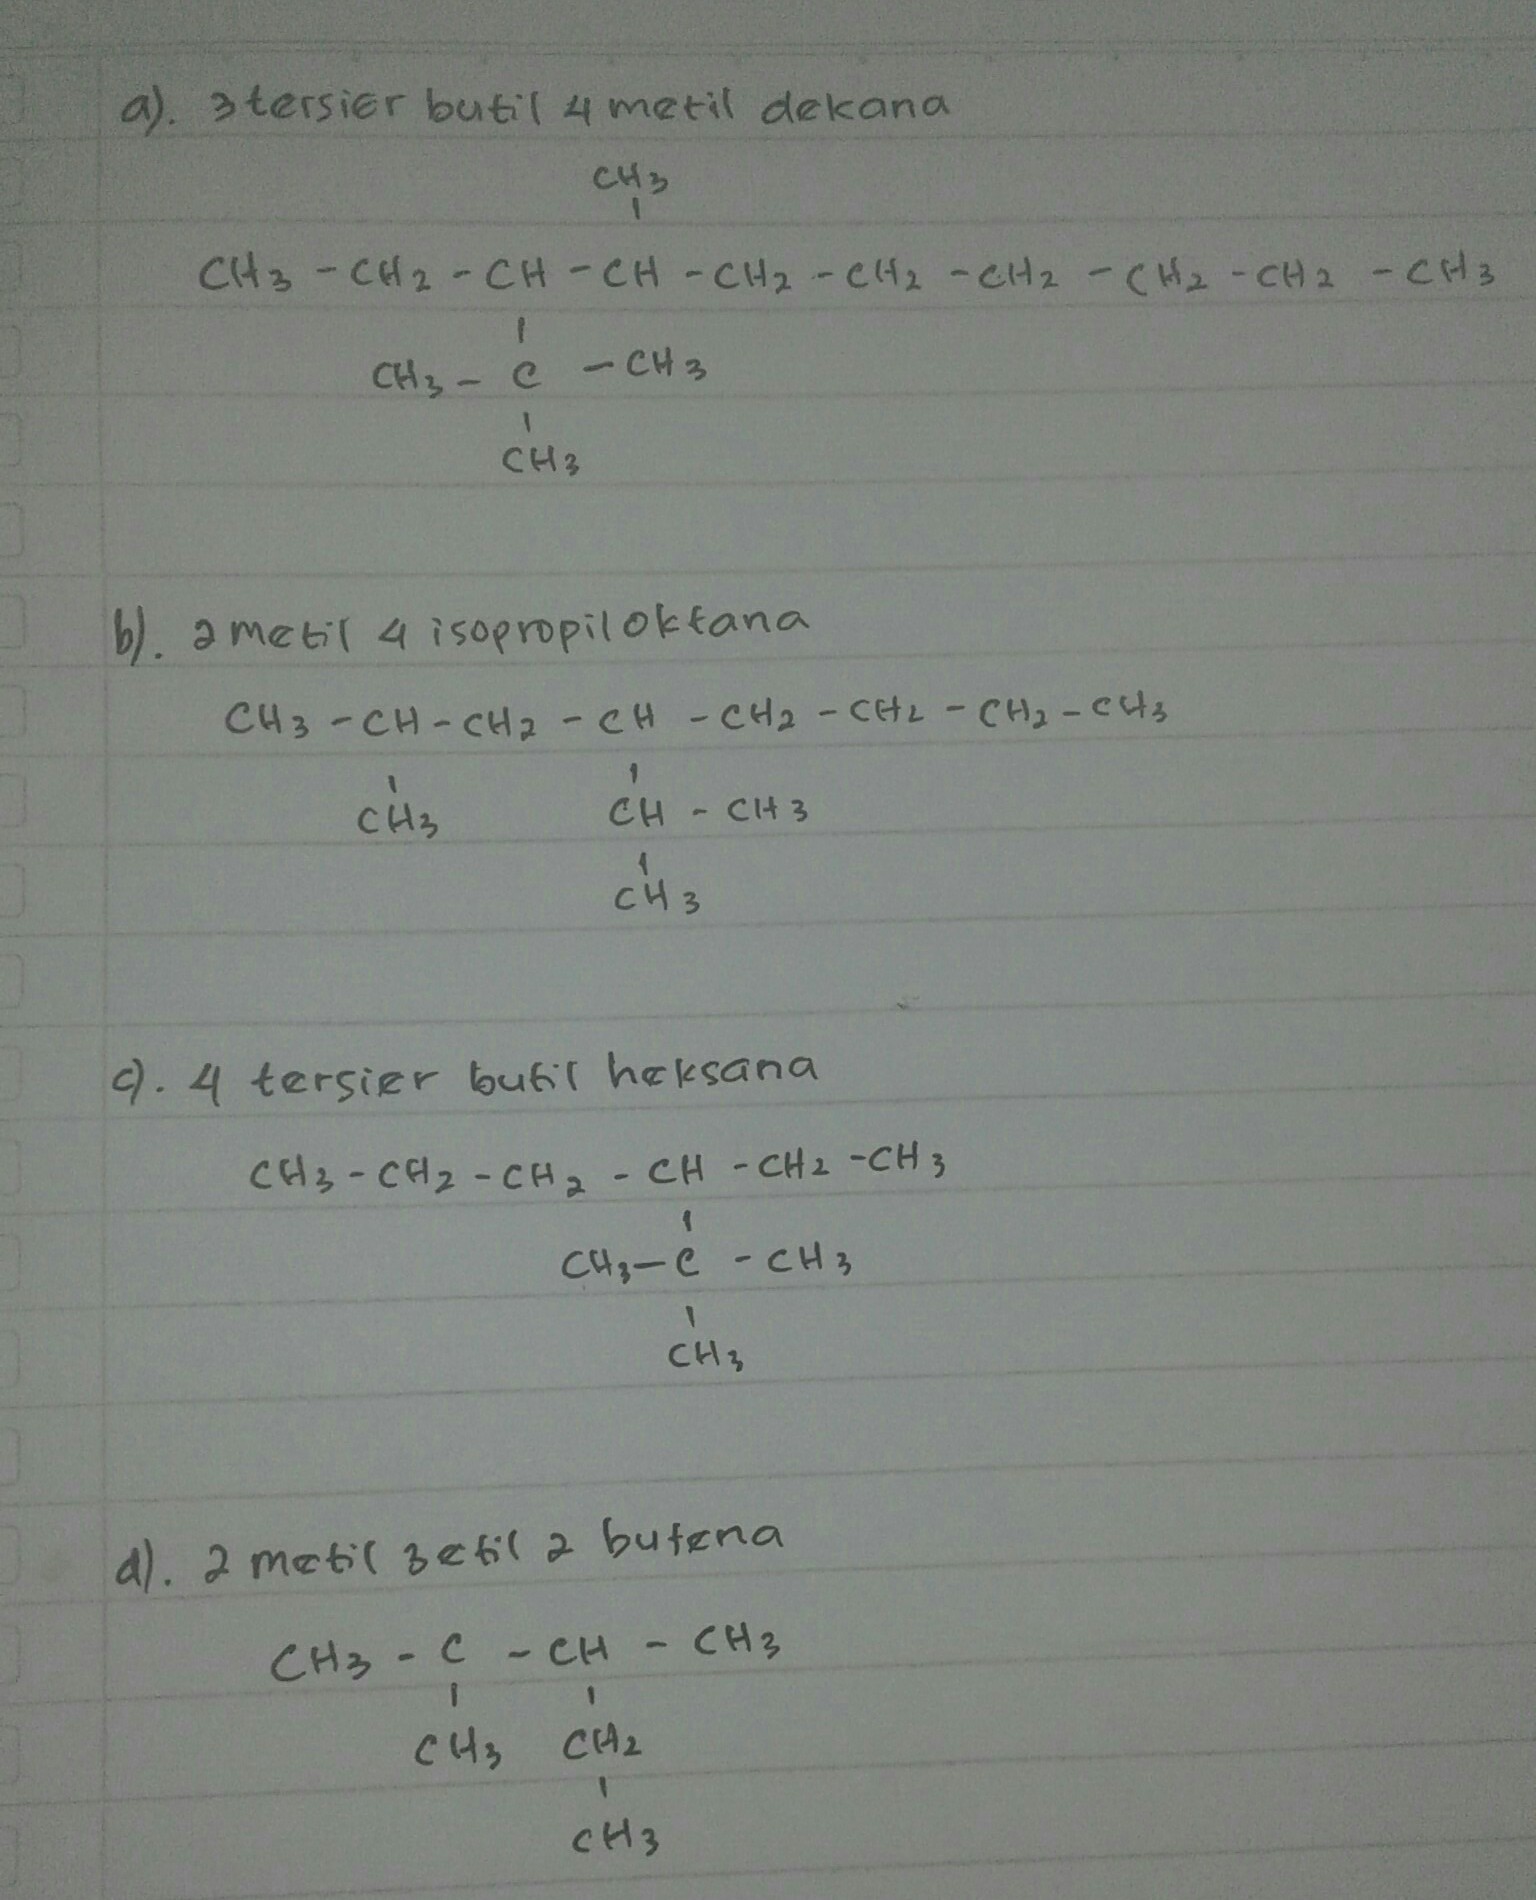 a). 3 tersier butil 4 metil dekana
CH3
CH3 - CH2 - CH - CH - CH2 - CH2 - CH2 - CH2 - CH2 - CH3
CH3 - C - CH3
CH3
b). 2 metil 4 isopropil oktana
CH3 - CH - CH2 - CH - CH2 - CH2 - CH2 - CH3
CH3 CH - CH3
CH3
c). 4 tersier butil heksana
CH3 - CH2 - CH2 - CH - CH2 - CH3
CH3 - C - CH3
CH3
d). 2 metil 3 etil 2 butena
CH3 - C - CH - CH3
CH3 CH2
CH3